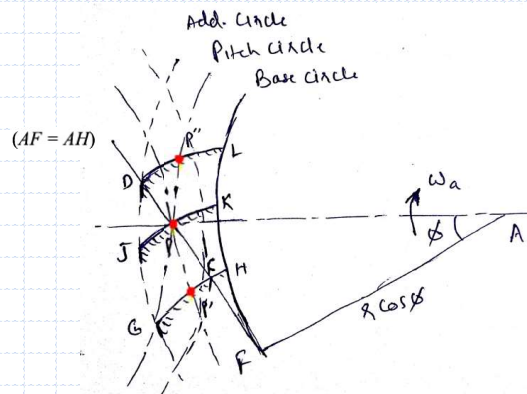 Add. Circle
Pitch Circle
Base Circle
(AF = AH)
R''
L
D
K
ωa
P
J
ϕ
A
C
H
P'
G
r cosϕ
F